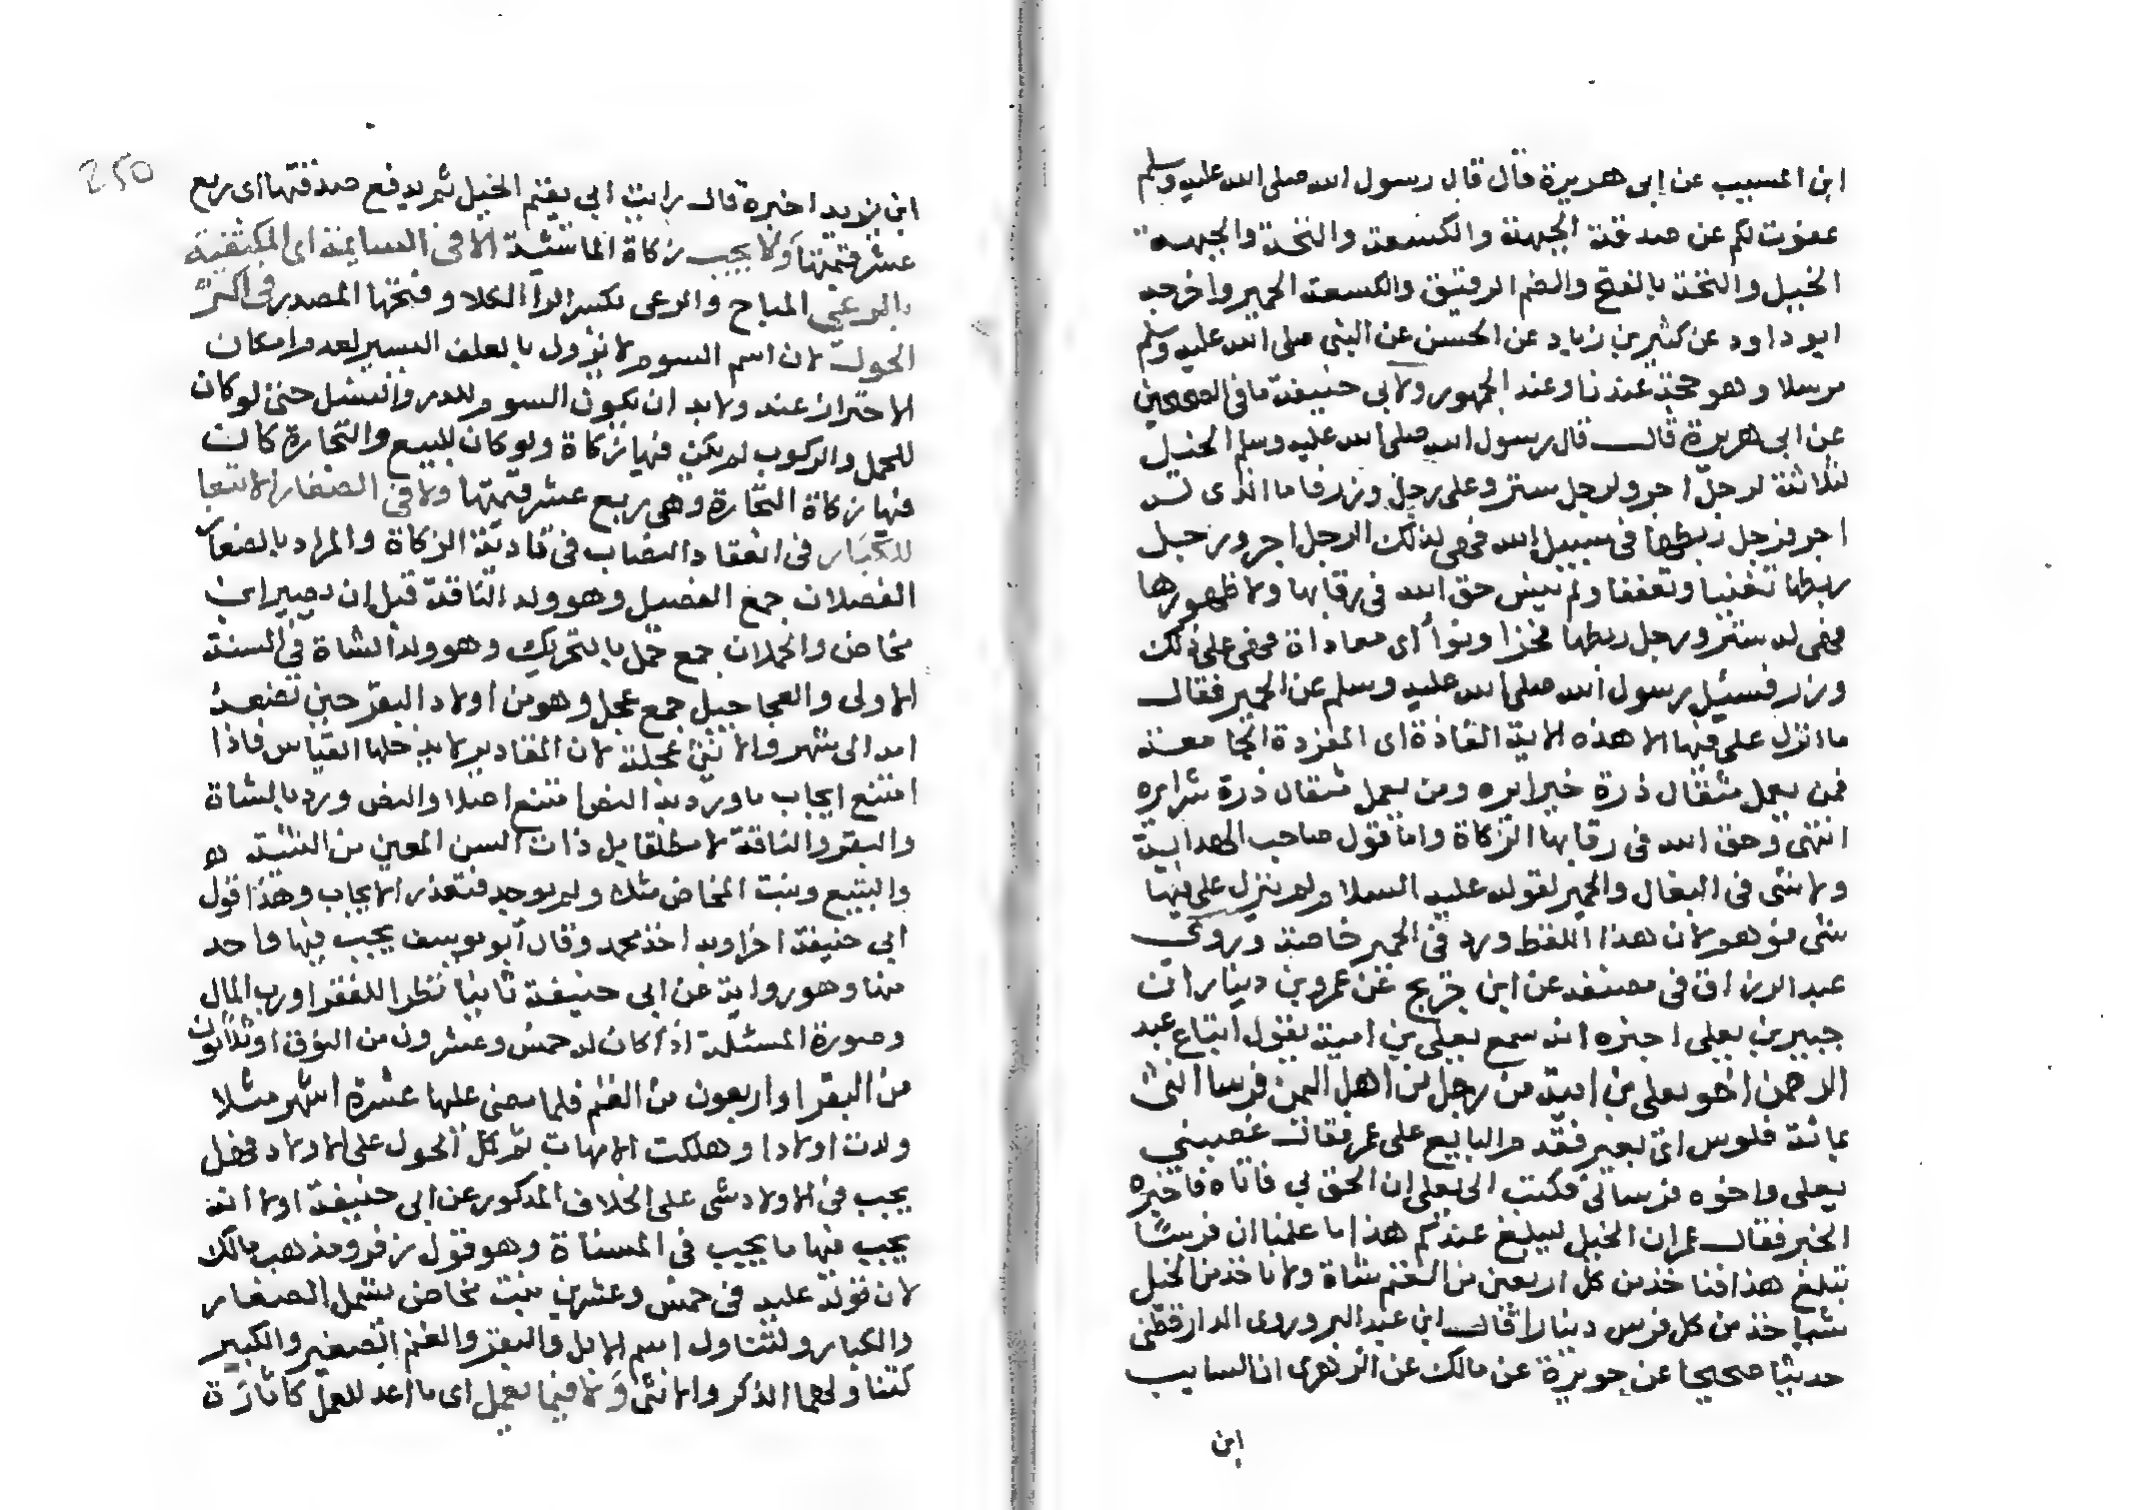 ابن المسيب عن ابي هريرة قال قال رسول الله صلى الله عليه وسلم
عفوت لكم عن صدقة الجبهة والكسعة والنخة والجبهة
الخيل والنخة بالفتح والضم الرقيق والكسعة الحمير واخرجه
ابو داود عن كثير بن زياد عن الحسن عن النبي صلى الله عليه وسلم
مرسلا وهو حجة عندنا وعند الجمهور ولابي حنيفة ما في الصحيحين
عن ابي هريرة قال قال رسول الله صلى الله عليه وسلم الخيل
لثلاثة لرجل اجر ولرجل ستر وعلى رجل وزر فاما الذى له
اجر فرجل ربطها في سبيل الله فهي لذلك الرجل اجر ورجل
ربطها تغنيا وتعففا ولم ينس حق الله في رقابها ولا ظهورها
فهي له ستر ورجل ربطها فخرا ونواً اى معاداة فهي على ذلك
وزر فسئل رسول الله صلى الله عليه وسلم عن الحمير فقال
ما انزل علي فيها الا هذه الاية الفاذة اى المفردة الجامعة
فمن يعمل مثقال ذرة خيرا يره ومن يعمل مثقال ذرة شرا يره
انتهى وحق الله في رقابها الزكاة واما قول صاحب الهداية
ولا شئ في البغال والحمير لقوله عليه السلام ولم ينزل علي فيها
شئ فوهو لان هذا اللفظ ورد في الحمير خاصة وروى
عبد الرزاق في مصنفه عن ابن جريج عن عمرو بن دينار ان
جبير بن يعلى اخبره انه سمع يعلى بن امية يقول ابتاع عبد
الرحمن اخو يعلى بن امية من رجل من اهل اليمن فرسا انثى
بمائة قلوس اى بعير فقدم البايع على عمر فقال غصبني
يعلى واخوه فرسا لي فكتب الى يعلى ان الحق بي فاتاه فاخبره
الخبر فقال عمر ان الخيل ليبلغ عندكم هذا ما علمنا ان فرسًا
تبلغ هذا فناخذ من كل اربعين من الغنم شاة ولا ناخذ من الخيل
شيئا خذ من كل فرس دينارا قال ابن عبد البر وروى الدارقطني
حديثا صحيحا عن جويرة عن مالك عن الزهرى ان السايب
ابن
250
ابن يزيد اخبره قال رايت ابي يقيم الخيل ثم يدفع صدقتها اى ربع
عشر قيمتها ولا يجب زكاة الماشية الا في السايمة اى المكتفية
بالرعي المباح والرعى بكسر الرا الكلا وفتحها المصدر في اكثر
الحول لان اسم السوم لا يزول بالعلف اليسير لعدم امكان
الاحتراز عنه ولا بد ان يكون السوم للدر والنسل حتى لو كان
للحمل والركوب لم يكن فيها زكاة ولو كان للبيع والتجارة كان
فيها زكاة التجارة وهي ربع عشر قيمتها ولا في الصغار الا تبعا
للكبار في انعقاد النصاب في تادية الزكاة والمراد بالصغار
الفصلان جمع الفصيل وهو ولد الناقة قبل ان يصير ابن
مخاض والحملان جمع حمل بالتحريك وهو ولد الشاة في السنة
الاولى والعجاجيل جمع عجل وهو من اولاد البقر حين تضعه
امه الى شهر والانثى عجلة لان المقادير لا يدخلها القياس فاذا
امتنع ايجاب ما ورد به النص امتنع اصلا والنص ورد بالشاة
والبقر والناقة لا مطلقا بل ذات السن المعين من الثنية
والتبيع وبنت المخاض مثلا ولم يوجد فتعذر الايجاب وهذا قول
ابي حنيفة اخرا وبه اخذ محمد وقال ابو يوسف يجب فيها واحد
منها وهو رواية عن ابي حنيفة ثانيا نظرا للفقرا ورب المال
وصورة المسئلة اذا كان له خمس وعشرون من النوق او ثلاثون
من البقر او اربعون من الغنم فلما مضى عليها عشرة اشهر مثلا
ولدت اولادا وهلكت الامهات ثم كمل الحول على الاولاد فهل
يجب في الاولاد شئ على الخلاف المذكور عن ابي حنيفة اولا انه
يجب فيها ما يجب في المسناة وهو قول زفر ومذهب مالك
لان قوله عليه في خمس وعشرين بنت مخاض يشمل الصغار
والكبار ولتناول اسم الابل والبقر والغنم الصغير والكبير
كتناولهما الذكر والانثى ولا فيما يعمل اى ما اعد للعمل كاثارة